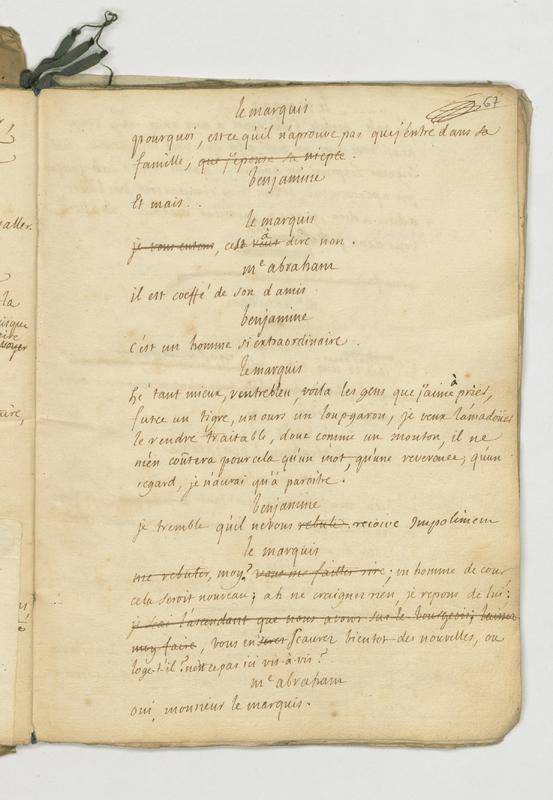 67
le marquis
pourquoi, est ce qu'il n'aprouve pas que j'entre dans sa
famille, que j'epouse sa niepce.
benjamine
Et mais..
le marquis
je vous entens, c'est à dire non.
me abraham
il est coeffé de son d'amis.
benjamine
c'est un homme si extraordinaire.
le marquis
hé tant mieux, ventrebleu voila les gens que j'aime à prier,
futce un tigre, un ours un loup garou, je veux lamadoüer
le rendre traitable, doux comme un mouton, il ne
m'en coûtera pour cela qu'un mot, qu'une reverence, qu'un
regard, je n'aurai qu'à paroitre.
benjamine
je tremble qu'il ne vous rebute. recoive impoliment
le marquis
me rebuter, moy? vous me failler rire; un homme de cour
cela seroit nouveau; ah ne craigner rien, je repons de lui:
je scai l'ascendant que nous avons sur le bourgeois; laisser
moy faire, vous en scaurez bientot des nouvelles, ou
loge-t'il? n'est ce pas ici vis-à-vis?
me abraham
oui, monsieur le marquis.